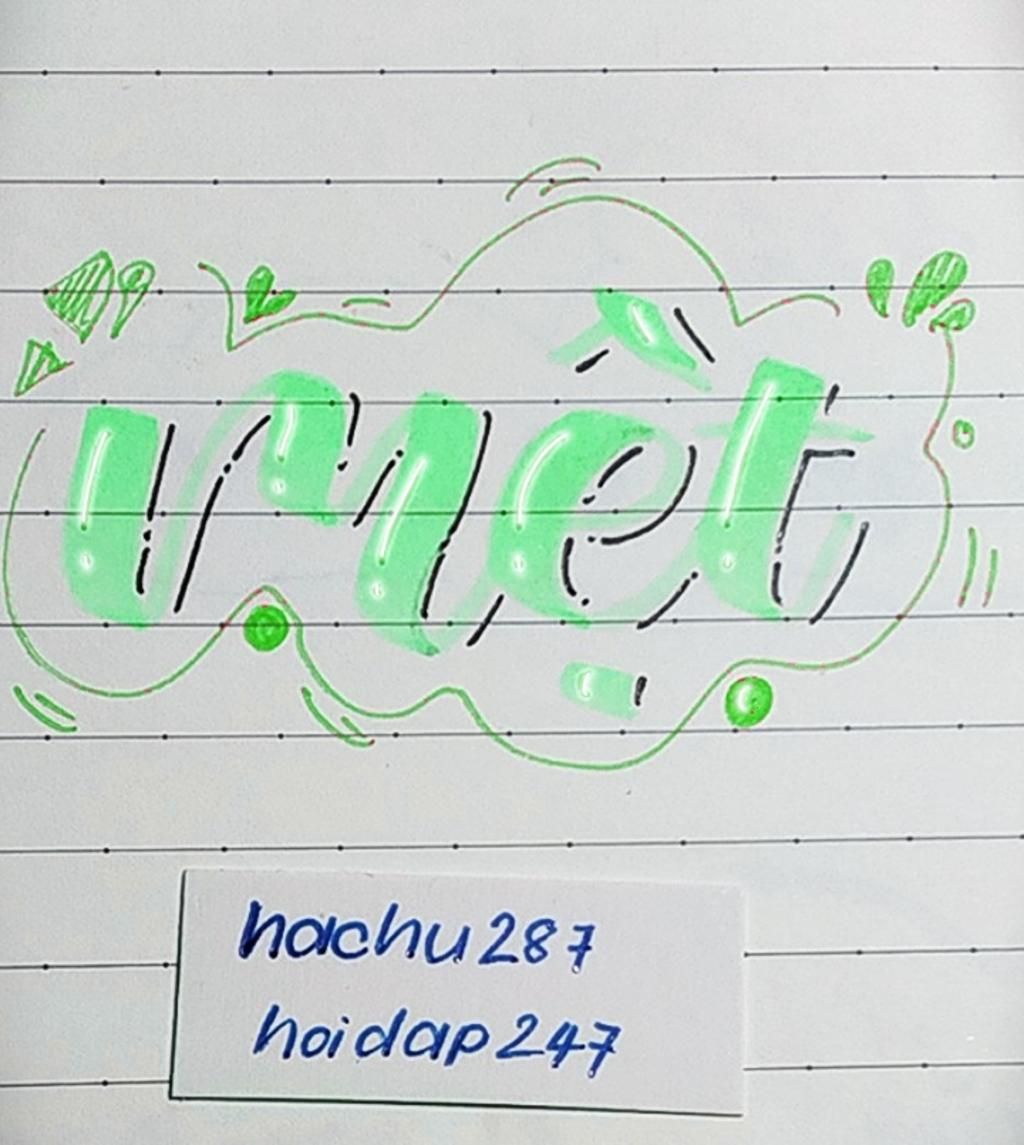 mệt
hachu287
hoidap247